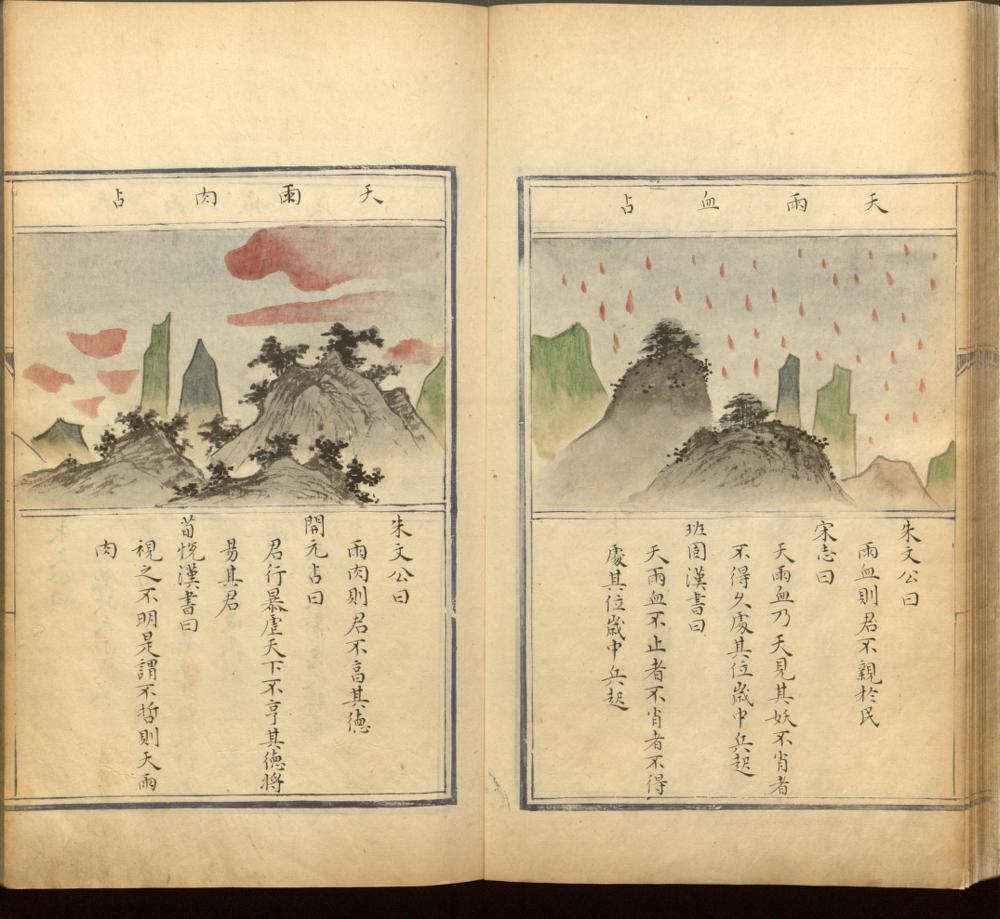 天雨血占
朱文公曰
雨血則君不親於民
宋志曰
天雨血乃天見其妖不肖者
不得久處其位歲中兵起
班固漢書曰
天雨血不止者不肖者不得
處其位歲中兵起
天雨肉占
朱文公曰
雨肉則君不高其德
開元占曰
君行暴虐天下不亨其德將
易其君
荀悅漢書曰
視之不明是謂不哲則天雨
肉